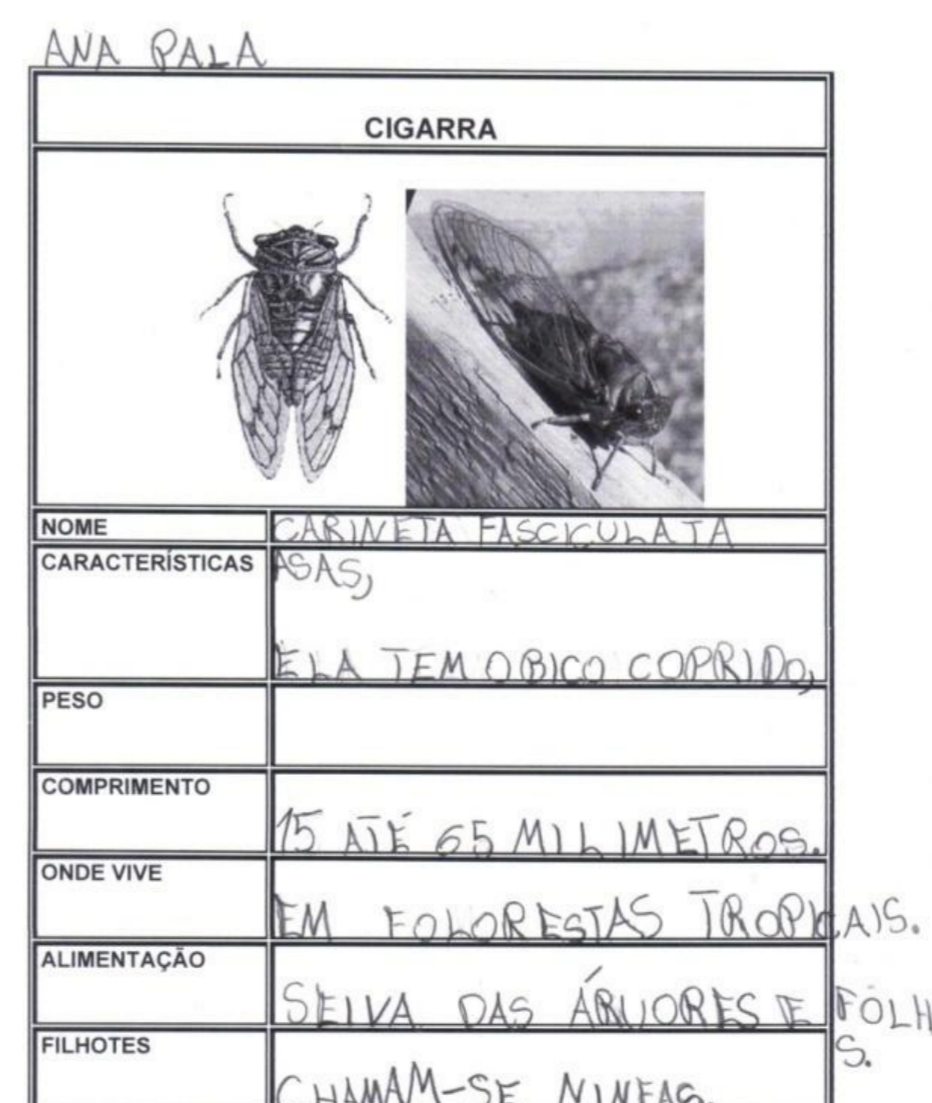 ANA PALA
CIGARRA
NOME CARINETA FASCICULATA
CARACTERÍSTICAS ASAS,
ELA TEM O BICO COPRIDO,
PESO
COMPRIMENTO
15 ATÉ 65 MILIMETROS.
ONDE VIVE
EM FOLORESTAS TROPICAIS.
ALIMENTAÇÃO
SEIVA DAS ÁRVORES E FOLH
S.
FILHOTES
CHAMAM-SE NINFAS.